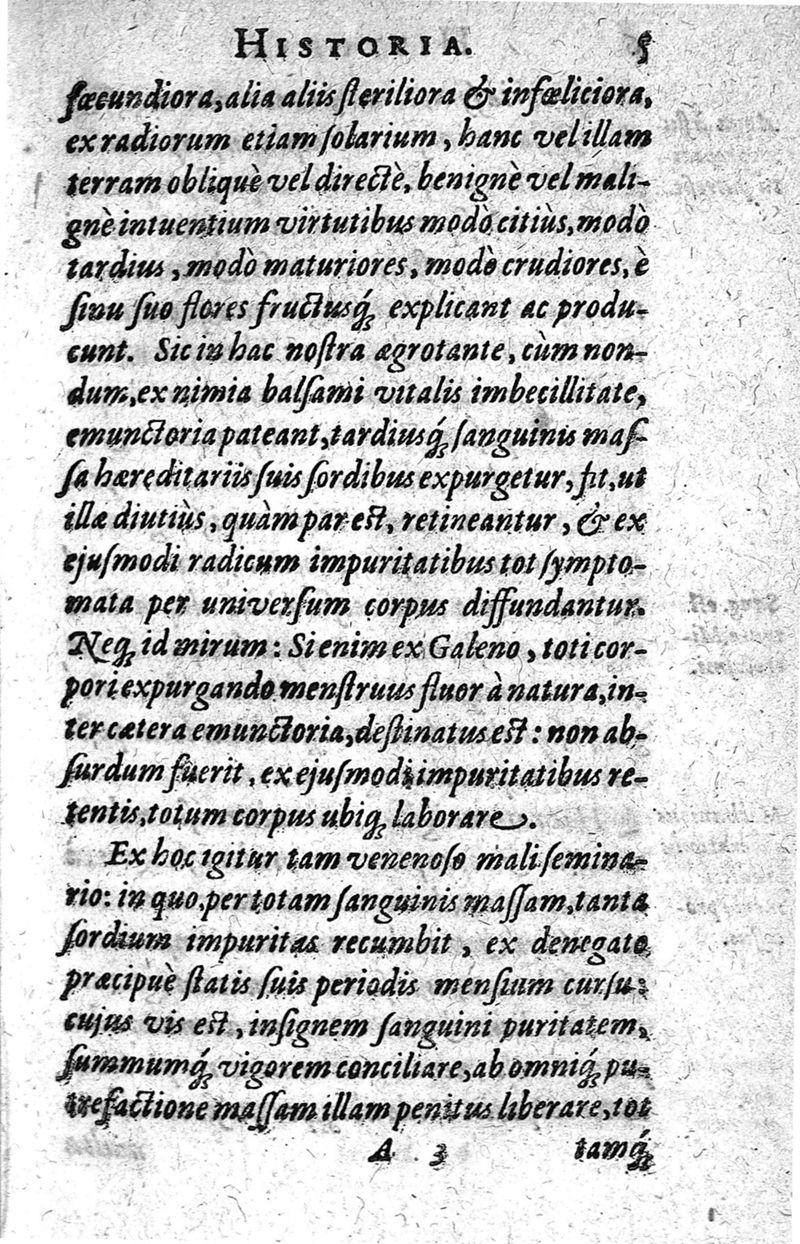 HISTORIA. 5
fœcundiora, alia aliis ſteriliora & infœliciora,
ex radiorum etiam ſolarium, hanc vel illam
terram obliquè vel directè, benignè vel mali-
gnè intuentium virtutibus modò citiùs, modò
tardius, modò maturiores, modò crudiores, è
ſinu ſuo flores fructusq́; explicant ac produ-
cunt. Sic in hac noſtra ægrotante, cùm non-
dum, ex nimia balſami vitalis imbecillitate,
emunctoria pateant, tardiusq́; ſanguinis maſ-
ſa hæreditariis ſuis ſordibus expurgetur, fit, ut
illæ diutiùs, quàm par est, retineantur, & ex
ejuſmodi radicum impuritatibus tot ſympto-
mata per univerſum corpus diffundantur.
Neq; id mirum: Si enim ex Galeno, toti cor-
pori expurgando menſtruus fluor à natura, in-
ter cætera emunctoria, deſtinatus est: non ab-
ſurdum fuerit, ex ejuſmodi impuritatibus re-
tentis, totum corpus ubiq; laborare.
Ex hoc igitur tam venenoſo mali ſemina-
rio: in quo, per totam ſanguinis maſſam, tanta
ſordium impuritas recumbit, ex denegato
præcipuè ſtatis ſuis periodis menſium curſu:
cujus vis est, inſignem ſanguini puritatem,
ſummumq́; vigorem conciliare, ab omniq́; pu-
trefactione maſſam illam penitus liberare, tot
A 3 tamq́;